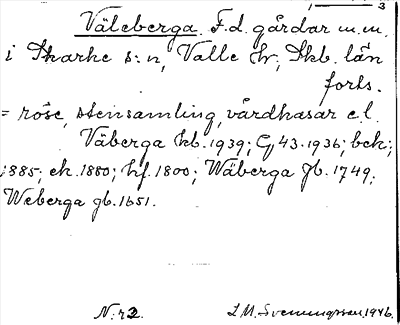 3
Väleberga. F.d. gårdar m.m.
i Skarke s:n, Valle hd, Skb. län
forts.
= röse, stensamling, vårdkasar e.l.
Väberga kb. 1939; G 43. 1936; bck;
1885; ek. 1880; hf. 1800; Wäberga Jb. 1749;
Weberga gb. 1651.
N:r 2. L.M. Svenungsson, 1946.